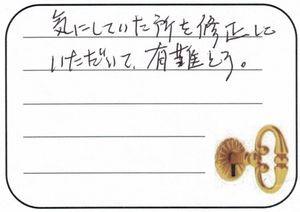 気にしていた所を修正して
いただいて、有難とう。